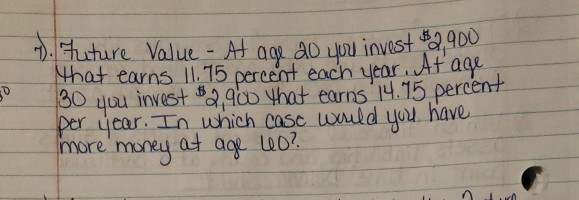 7). Future Value - At age 20 you invest $2,900
that earns 11.75 percent each year. At age
30 you invest $2,900 that earns 14.75 percent
per year. In which case would you have
more money at age 60?